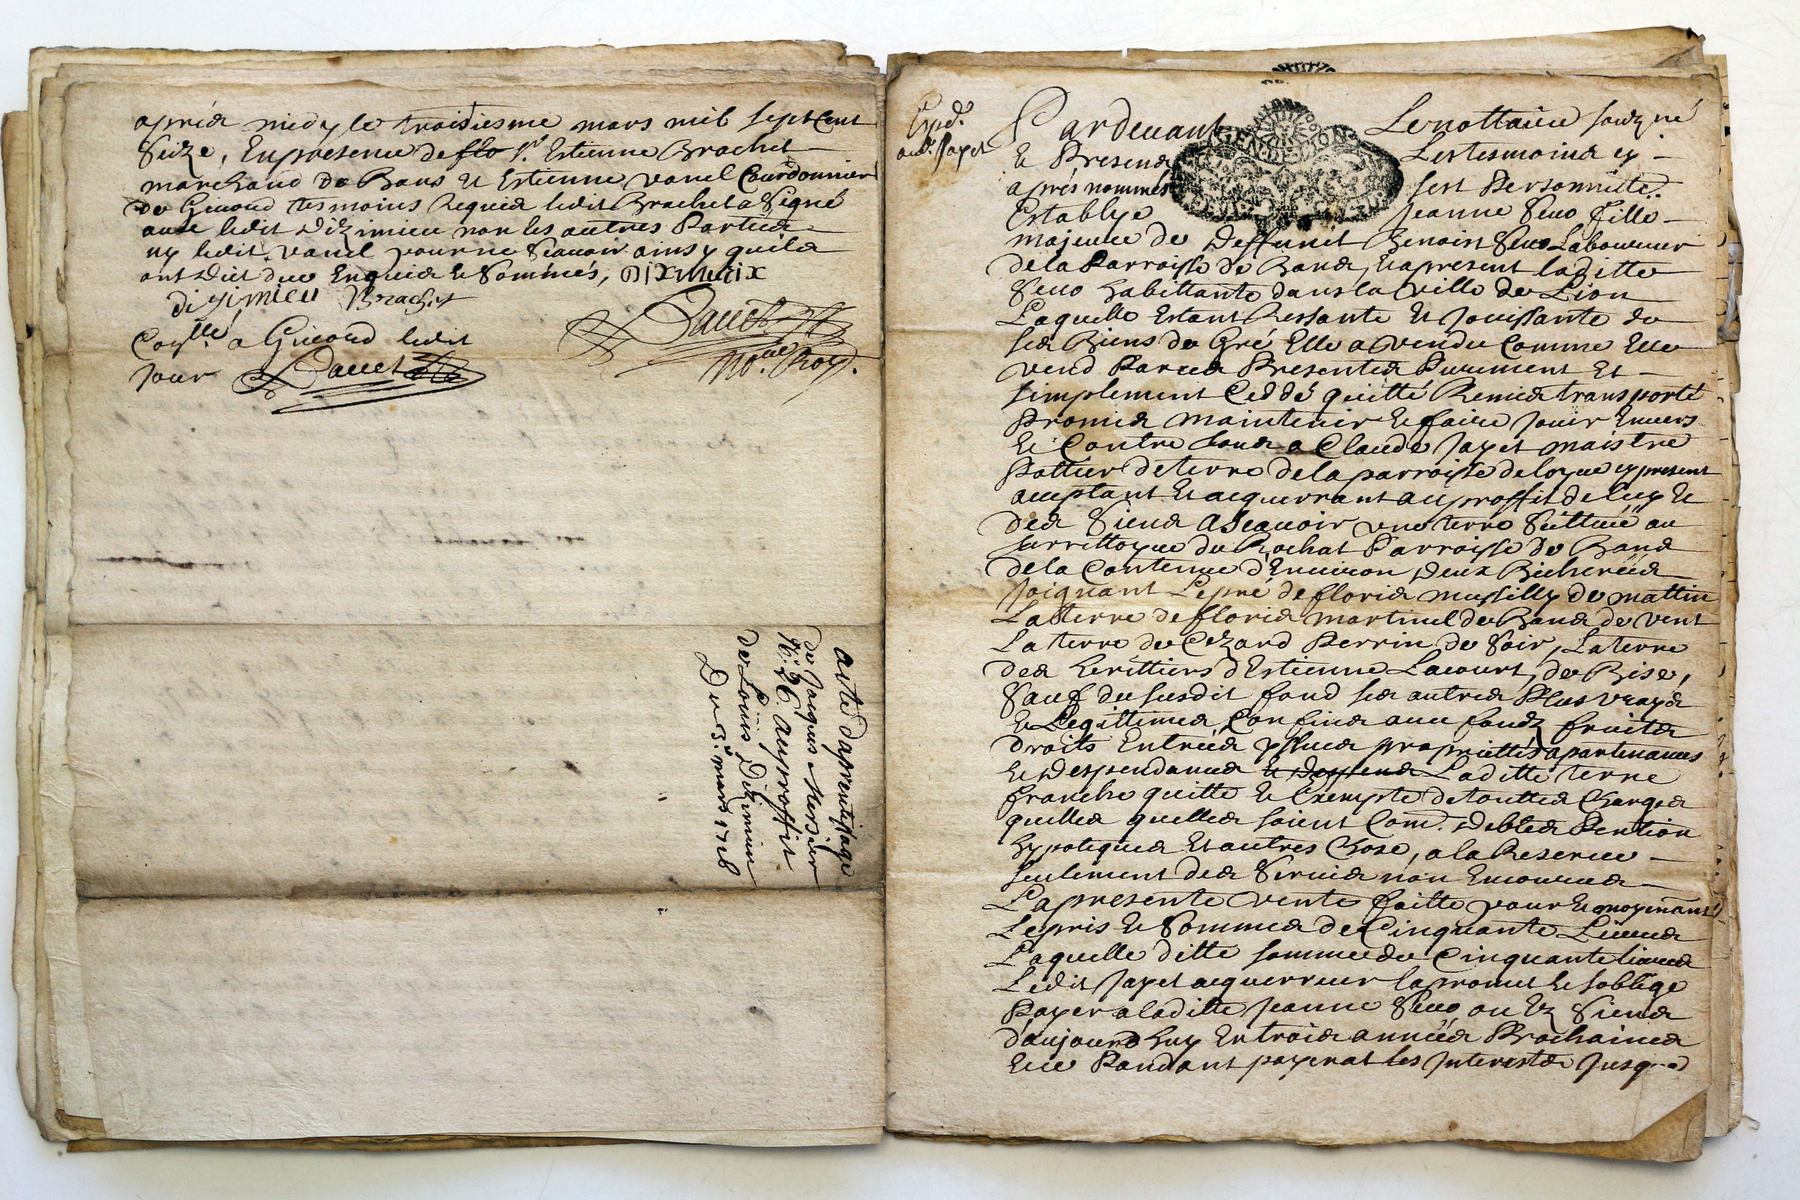 aprés midy le troisiesme mars mil sept cent
Seize, En presence de Sr. Estienne Brachet
marchand de Bans et Estienne vanel Courdonnier
de Givord tesmoins Requis ledit Brachet a Signé
avec ledit Dizimieu non les autres Parties
ny ledit vanel pour ne Scavoir ainsy quils
ont dict de ce Enquis et Sommés,
dizimieu Brachet
a Givord ledit
Jour
No.re Roy.
acte daprentissage
de Jacques Mersier
au proffit
de Louis Dizimieu
Du 3e. mars 1716
Expd.
Jayet
Pardevant Le nottaire souzné
Et Presens Les tesmoins cy
aprés nommés sest Personnelle.
Establye Jeanne Feuo fille
majeure de deffunct Benoist Feuo Laboureur
de la Parroisse de Bans, Et apresent laditte
Feuo habittante dans la ville de Lion
Laquelle Estant Ressante et Jouissante de
ses Biens de Gré Elle a vendu Comme Elle
vend Par ces Presentes Purement Et
simplement Ceddé quitté Remis transporté
Promis maintenir Et faire Jouir Envers
Et Contre tous a Claude Jayet maistre
Pottier de terre de la parroisse de loyre cy present
acceptant Et acquerrant au proffit de luy Et
des Siens Ascavoir une terre Scittuée au
territtoyre du Rochat Parroisse de Bans
de la Contenue d'Environ deux Bicherées
Joignant Le pré de floris mussilly de mattin
La terre de floris martinel de Bans de vent
La terre de Cezard Perrin de Soir, La terre
des herittiers d'Estienne Lacourt, de Bise,
Sauf du susdit fond ses autres Plus vrays
Et Legittimes Confins avec fondz fruits
droits Entrées yssues proprietés apartenances
Et despendances Laditte terre
franche quitte Et Exempte de touttes Charges
quelles quelles soient Com. debtes Pention
hypoteques Et autres Chose, a la Reserve
seulement des Servis non Encourus
La presente vente faitte pour Et moyennant
Le pris Et Somme de Cinquante Livres
Laquelle ditte somme de Cinquante livres
Ledit Jayet acquerreur la promet Et soblige
Payer a laditte Jeanne Feuo ou Ez Siens
d'aujourdhuy En trois années Prochaines
Et ce Pandant payerat les Interests Jusq